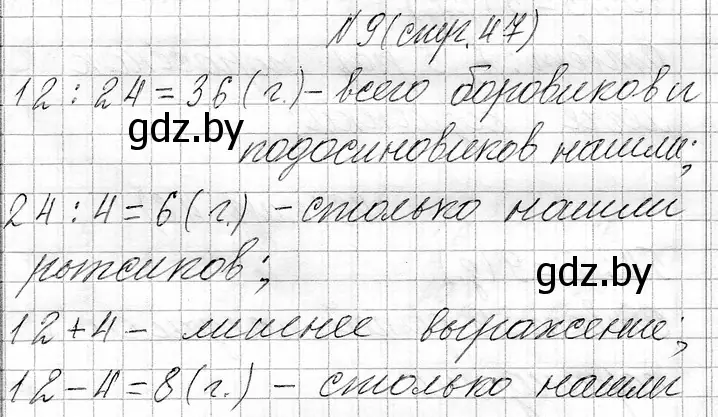 №9(стр.47)
12 : 24 = 36 (г.) – всего боровиков и
gdz.by
подосиновиков нашли;
24 : 4 = 6 (г.) – столько нашли
рыжиков;
gdz.by
12 + 4 – лишнее выражение;
12 – 4 = 8 (г.) – столько нашли
gdz.by